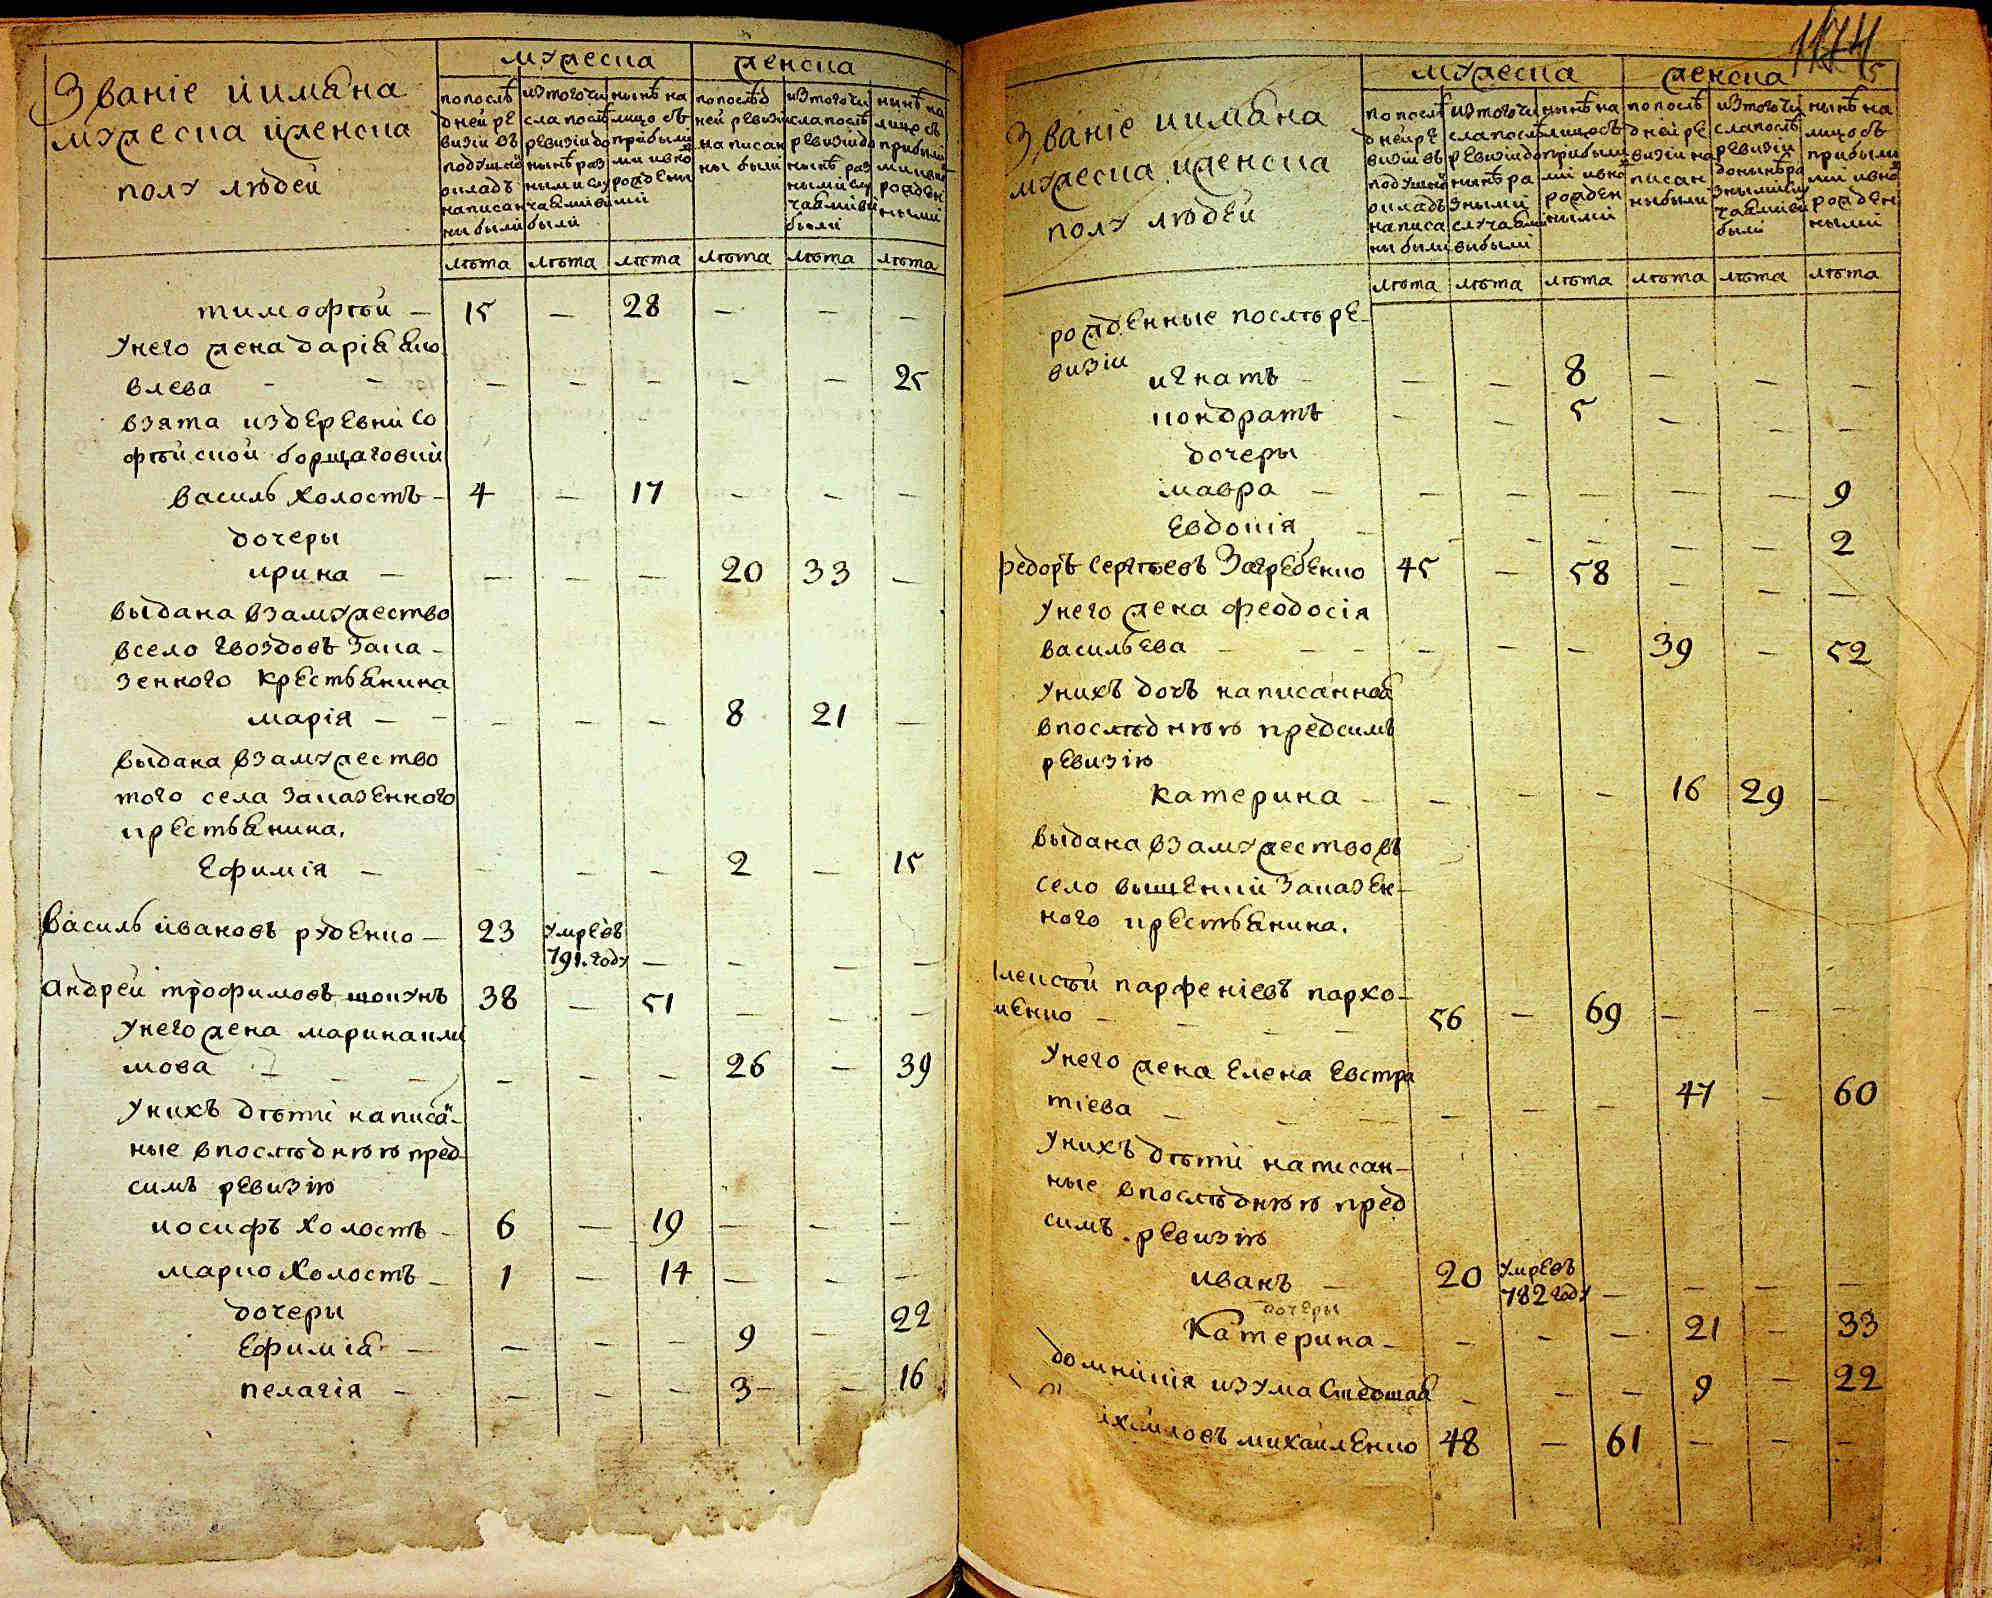 Званіе иимѣна
мужеска иженска
полу людей
мужеска
женска
попослѣ
дней ре
визіи въ
подушнŏ
окладъ
написан
ни были
изтого чи
сла послѣ
ревизіи до
нынѣ раз
ными слу
чаями ви
были
нынѣ на
лицо съ
прибылы
ми ивно
рожденны
мй
попослѣд
ней ревизи
написан
ны были
изтого чи
сла послѣ
ревизіи до
нынѣ раз
ными слу
чаями ви
были
нинѣ на
лицо съ
прибылы
ми ивно
рожден
ными
лѣта лѣта лѣта лѣта лѣта лѣта
тимофѣй – 15 – 28 – – –
Унего жена даріѧ Яко
влева – – – – – – – 25
взята издеревни Со
фѣйской борщаговки
василь холостъ – 4 – 17 – – –
дочеры
ирина – – – – 20 33 –
выдана взамужество
всело гвоздовъ Зака
зенного крестьянина
марія – – – – – 8 21 –
выдана взамужество
того села Заказенного
крестьянина.
Ефимія – – – – 2 – 15
Василь ивановъ руденко – 23 умре въ
791. году – – – –
андрей трофимовъ шокунъ 38 – 51 – – –
унего жена марина кли
мова – – – – – – 26 – 39
унихъ дѣти написа
ные впослѣднюю пред
симъ ревизію
иосифъ холостъ – 6 – 19 – – –
марко холостъ – 1 – 14 – – –
дочеры
Ефиміѧ – – – – 9 – 22
пелагія – – – – 3 – 16
1174
5
Званіе иимѣна
мужеска иженска
полу людей
мужеска
женска
попослѣ
дней ре
визіи въ
подушнŏ
окладъ
написа
ны были
изтого чи
сла послѣ
ревизіи до
нынѣ ра
зными
случаями
выбыли
нынѣ на
лицо съ
прибылы
ми ивно
рожден
ными
попослѣ
дней ре
визіи на
писан
ны были
изтого чи
сла послѣ
ревизіи
донынѣ ра
зными слу
чаями ви
были
нынѣ на
лицо съ
прибылы
ми ивно
рожден
ными
лѣта лѣта лѣта лѣта лѣта лѣта
рожденные послѣ ре–
визіи
игнатъ – – – 8 – – –
кондратъ – – 5 – – –
дочеры
мавра – – – – – – 9
Евдокія – – – – – – 2
Федоръ Сергѣевъ Загребенко 45 – 58 – – –
унего жена феодосія
васильева – – – – – – 39 – 52
унихъ дочъ написанная
впослѣднюю предсимъ
ревизію
катерина – – – – 16 29 –
выдана взамужество въ
село вышенки Заказен–
ного крестьянина.
алексѣй парфеніевъ пархо–
менко – – – – 56 – 69 – – –
унего жена Елена Евстра
тіева – – – – – – 47 – 60
унихъ дѣти написан–
ные впослѣднюю пред
симъ ревизію
иванъ – 20 умре въ
782 году – – – –
дочеры
Катерина – – – – 21 – 33
домникія изума Сшедшая – – – 9 – 22
михайленко 48 – 61 – – –